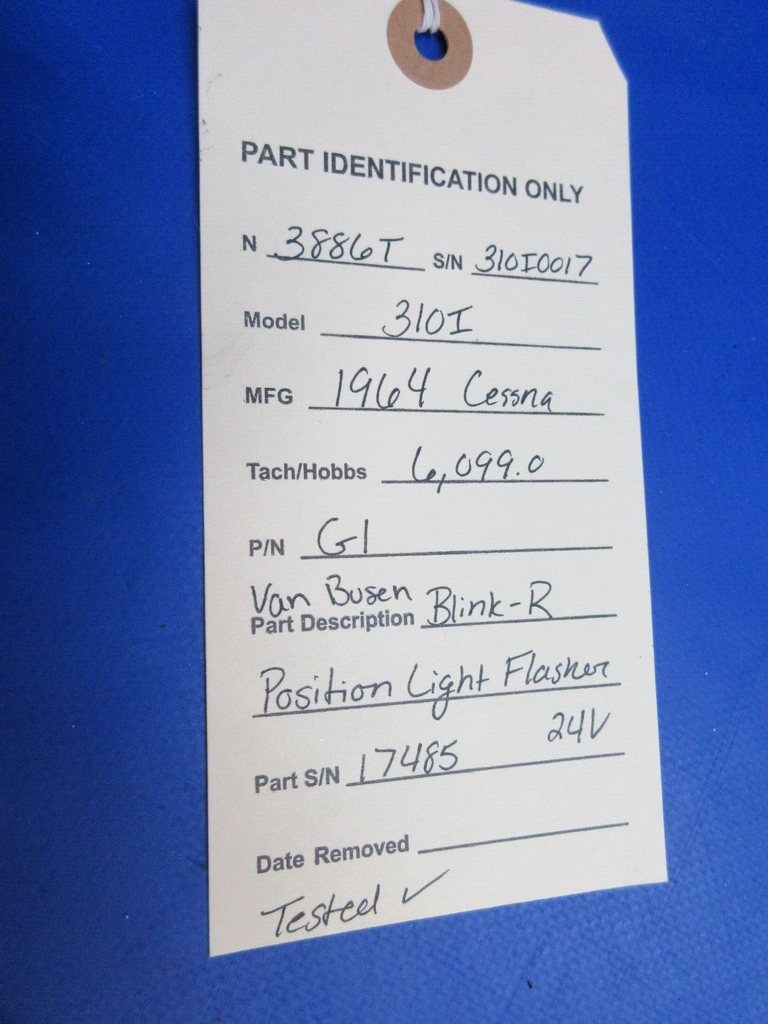 PART IDENTIFICATION ONLY
N 3886T S/N 310I0017
Model 310I
MFG 1964 Cessna
Tach/Hobbs 6,099.0
P/N G1
Van Busen
Part Description Blink-R
Position Light Flasher
24V
Part S/N 17485
Date Removed
Tested ✓